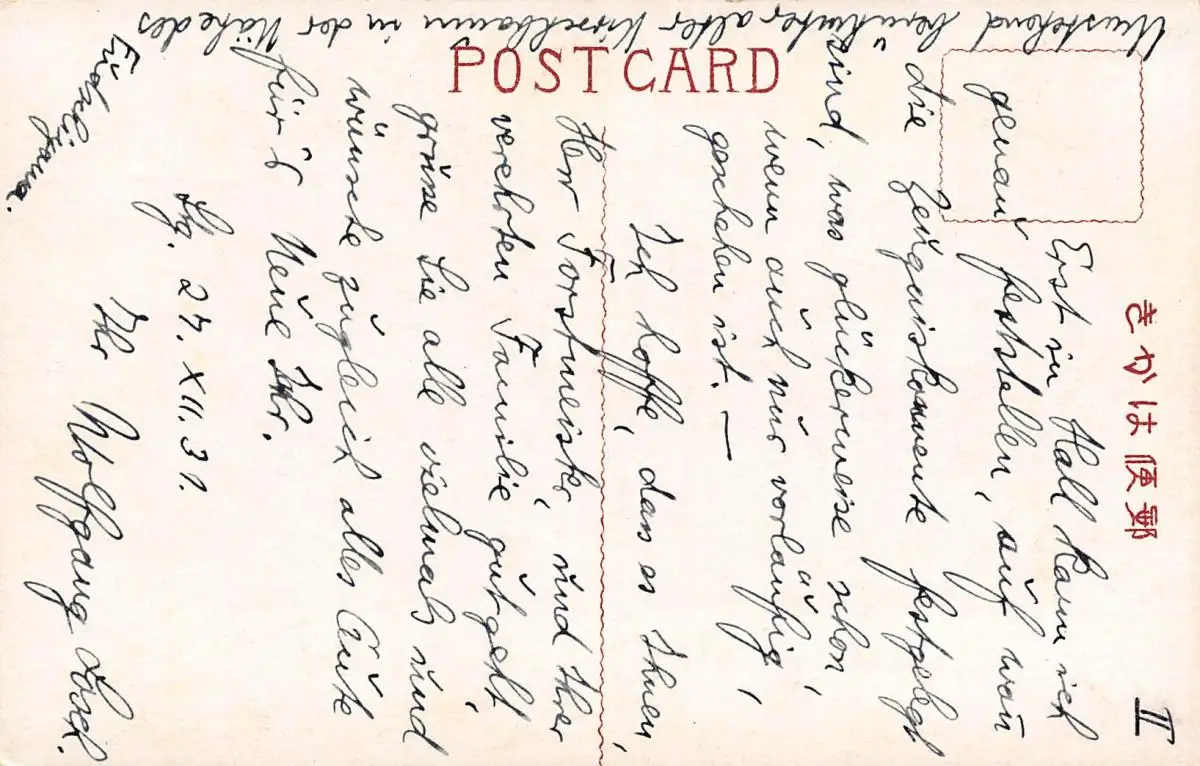 POSTCARD
きかは便郵
II
Erst in Hall kann ich
genau feststellen, auf wan
die festgelegt
sind, was glückerweise schon,
wenn auch nur vorläufig,
geschehen ist. —
Ich hoffe, dass es Ihnen,
Herr Forstmeister, und Ihrer
verehrten Familie gutgeht,
grüsse Sie alle vielmals und
wünsche zugleich alles Gute
für's Neue Jhr.
27. XII. 31.
Ihr Wolfgang
Umstehend berühmter alter Kirschbaum in der Nähe des
Fudschijama.